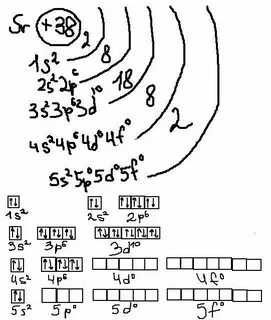 Sr +38 2 8 18 8 2
1s² 
2s²2p⁶
3s²3p⁶3d¹⁰
4s²4p⁶4d⁰4f⁰
5s²5p⁰5d⁰5f⁰
↑↓ ↑↓ ↑↓ ↑↓ ↑↓
1s² 2s² 2p⁶
↑↓ ↑↓ ↑↓ ↑↓ ↑↓ ↑↓ ↑↓ ↑↓ ↑↓
3s² 3p⁶ 3d¹⁰
↑↓ ↑↓ ↑↓ ↑↓
4s² 4p⁶ 4d⁰ 4f⁰
↑↓
5s² 5p⁰ 5d⁰ 5f⁰